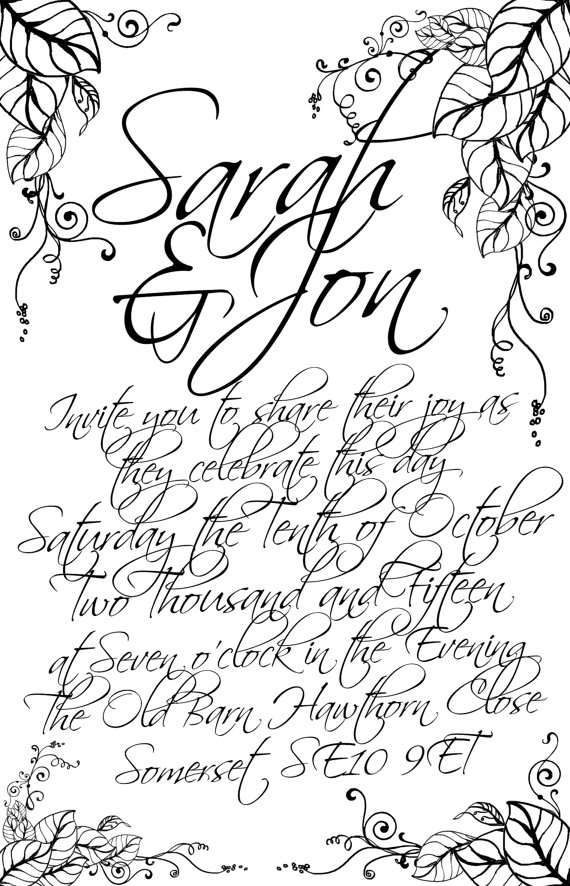 Sarah
& Jon
Invite you to share their joy as
they celebrate this day
Saturday the Tenth of October
Two Thousand and Fifteen
at Seven o'clock in the Evening
The Old Barn Hawthorn Close
Somerset SE10 9ET